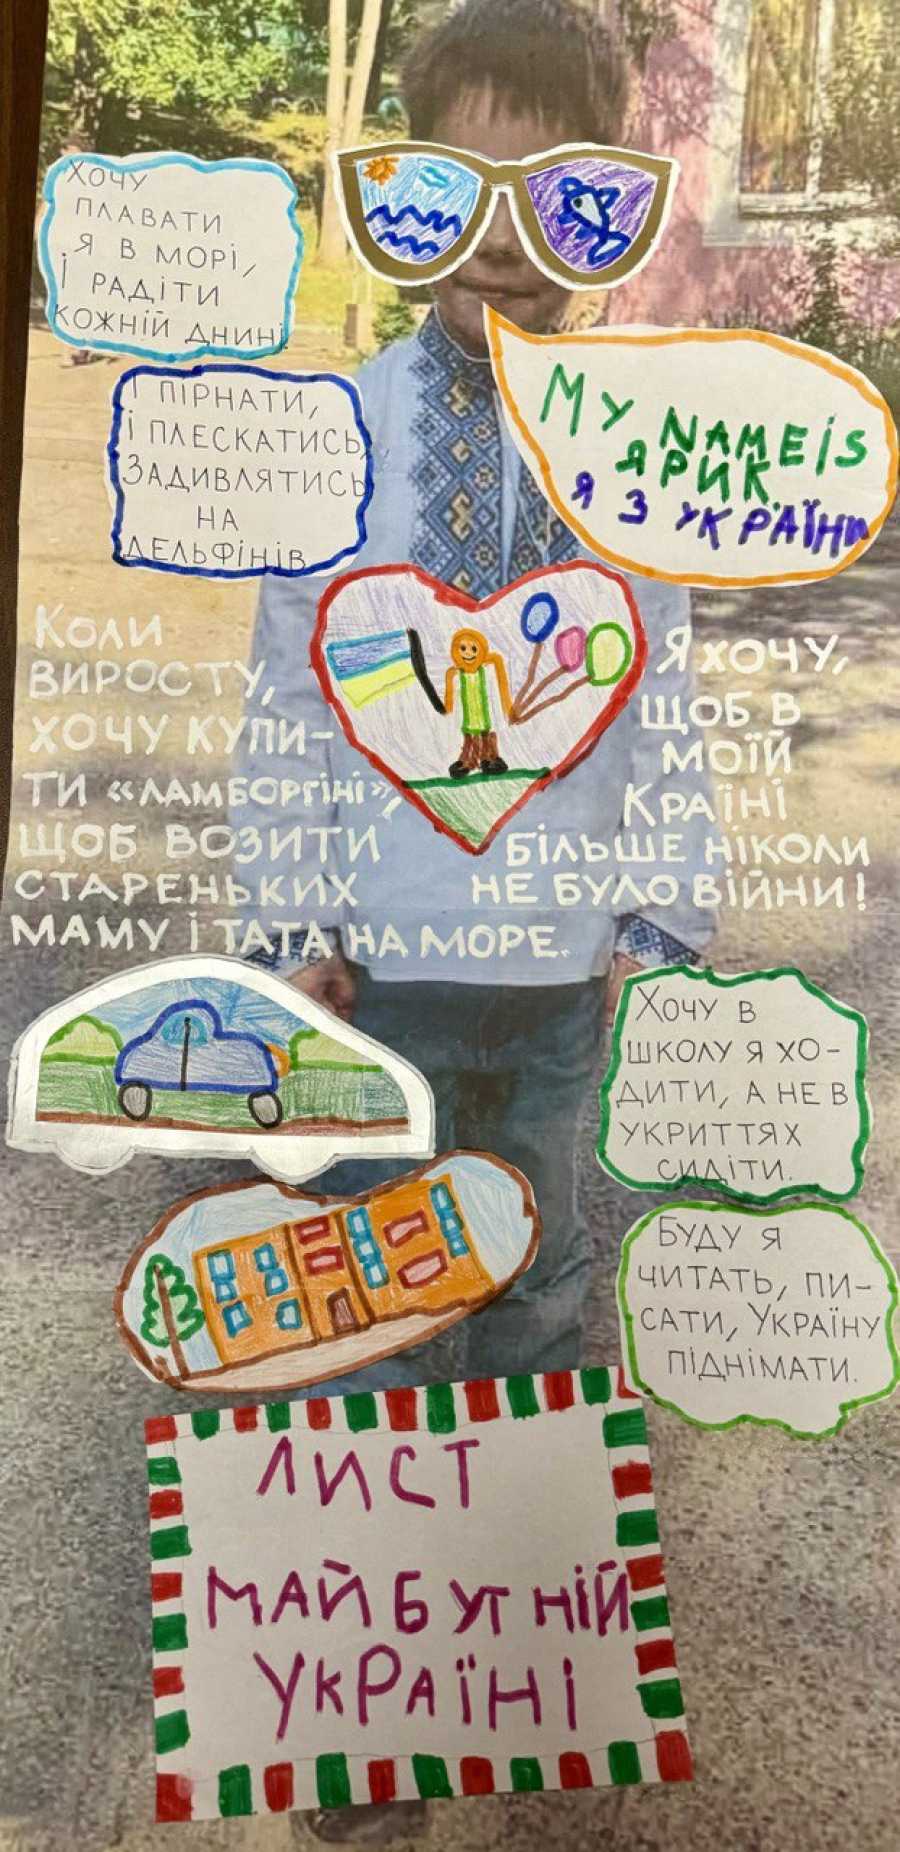 ХОЧУ
ПЛАВАТИ
Я В МОРІ,
І РАДІТИ
КОЖНІЙ ДНИНІ
І ПІРНАТИ,
І ПЛЕСКАТИСЬ,
ЗАДИВЛЯТИСЬ
НА
ДЕЛЬФІНІВ
MY NAME IS
ЯРИК.
Я З УКРАЇНИ
КОЛИ
ВИРОСТУ,
ХОЧУ КУПИ-
ТИ «ЛАМБОРГІНІ»,
ЩОБ ВОЗИТИ
СТАРЕНЬКИХ
МАМУ І ТАТА НА МОРЕ.
Я ХОЧУ,
ЩОБ В
МОЇЙ
КРАЇНІ
БІЛЬШЕ НІКОЛИ
НЕ БУЛО ВІЙНИ!
ХОЧУ В
ШКОЛУ Я ХО-
ДИТИ, А НЕ В
УКРИТТЯХ
СИДІТИ.
БУДУ Я
ЧИТАТЬ, ПИ-
САТИ, УКРАЇНУ
ПІДНІМАТИ.
ЛИСТ
МАЙБУТНІЙ
УКРАЇНІ